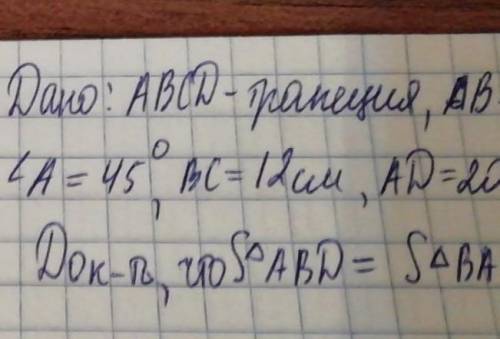 Дано: ABCD - трапеция, AB
∠A = 45°, BC = 12 см, AD = 20
Док-ть, что S△ABD = S△BA